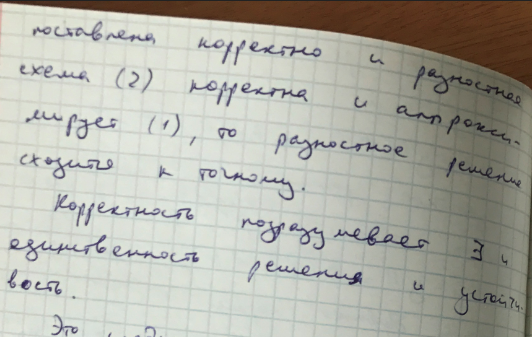 поставлена корректно и разностная
схема (2) корректна и аппрокси-
мирует (1), то разностное решение
сходится к точному.
Корректность подразумевает ∃ и
единственность решения и устойчи-
вость.
Это